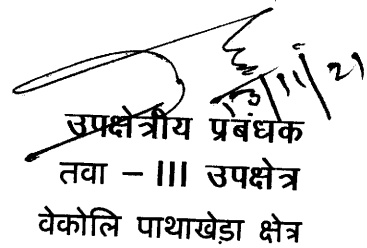 13/11/21
उपक्षेत्रीय प्रबंधक
तवा – III उपक्षेत्र
वेकोलि पाथाखेड़ा क्षेत्र